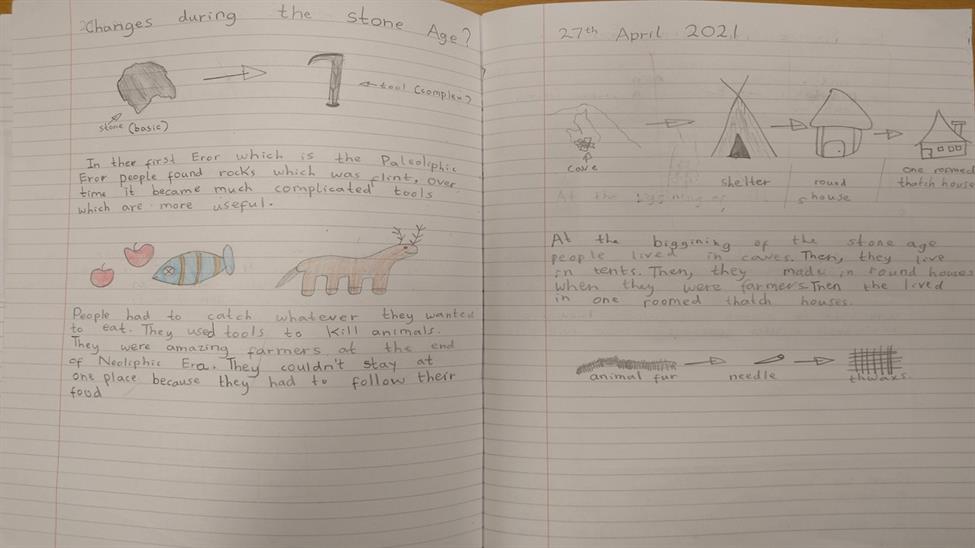 Changes during the stone Age?
tool (complex)
stone (basic)
In ther first Eror which is the Paleoliphic
Eror people found rocks which was flint, over
time it became much complicated tools
which are more useful.
People had to catch whatever they wanted
to eat. They used tools to kill animals.
They were amazing farmers at the end
of Neoliphic Era. They couldn't stay at
one place because they had to follow their
food
27th April 2021
cave
shelter
round house
one roomed
thatch house
At the biggining of the stone age
people lived in caves. Then, they live
in tents. Then, they made in round houses
when they were farmers. Then the lived
in one roomed thatch houses.
animal fur
needle